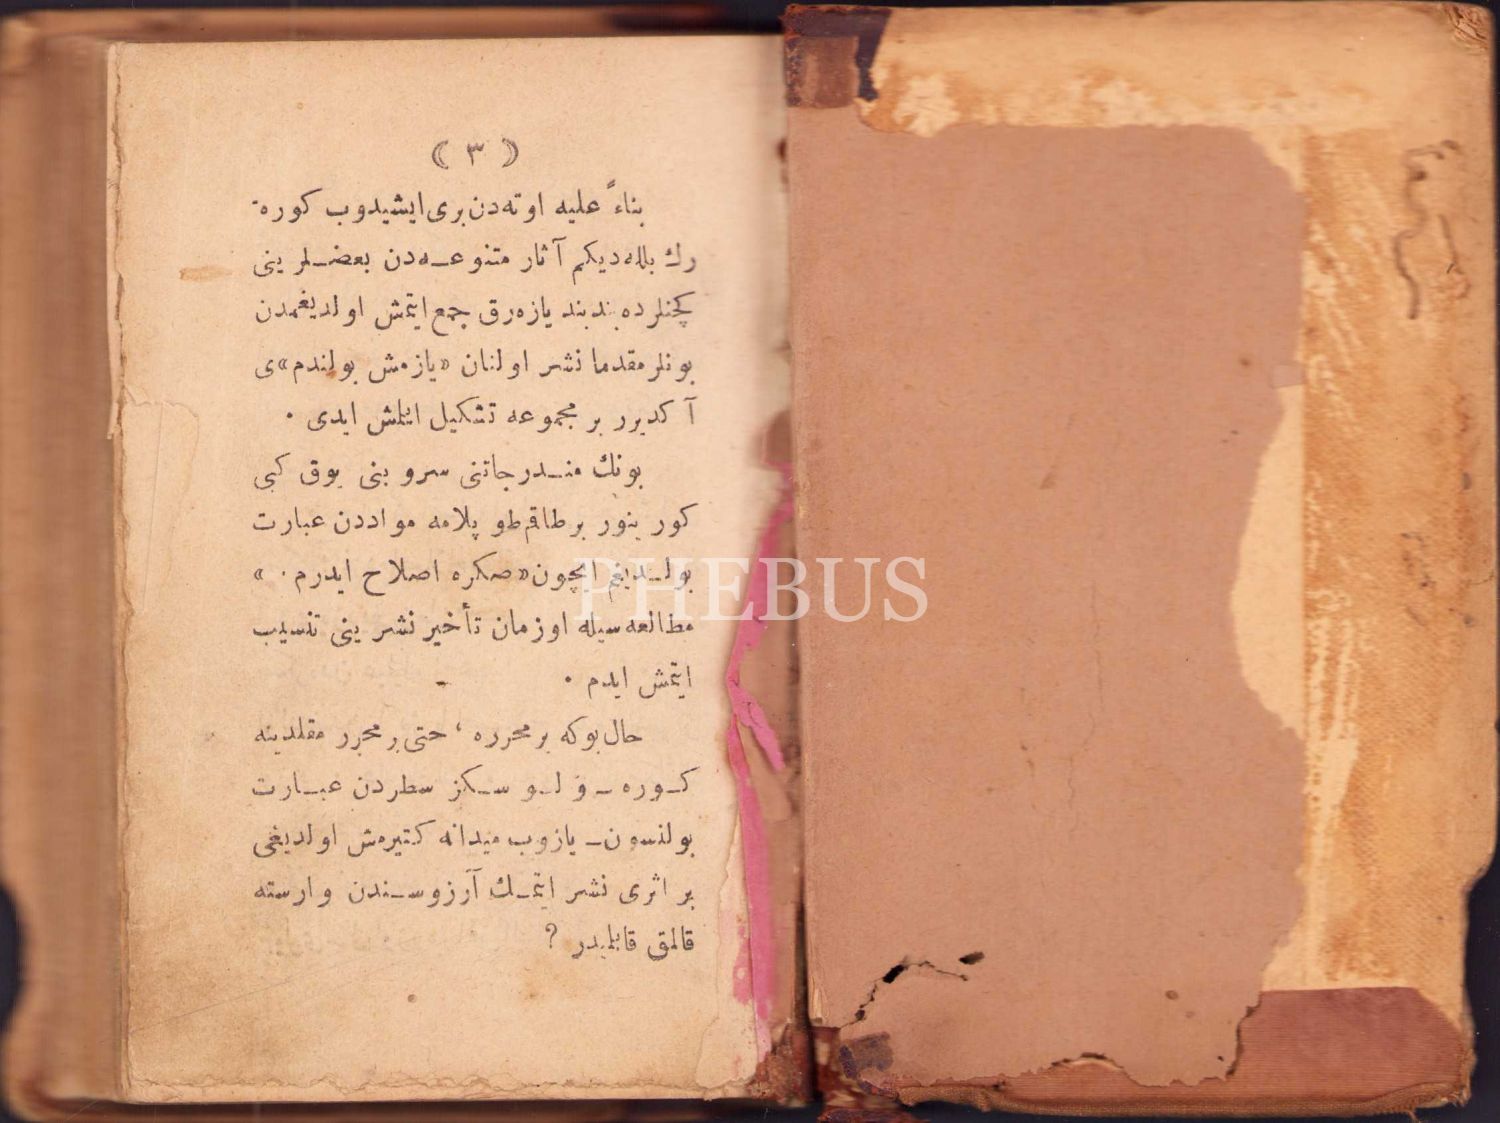 ( ٣ )
بناءً علیه اوته‌دن بری ایشیدوب كوره-
رك بللەدیكم آثار متنوعه‌دن بعضـلرینی
كچنلرده بند بند یازه‌رق جمع ایتمش اولدیغمدن
بونلر مقدما نشر اولنان «یازمش بولندم»ی
آكدیرر بر مجموعه تشكیل ایتمش ایدی ·
بونك منـدرجاتنی سروبنی یوق كبی
كورینور برطاقم طوپلامه مواددن عبارت
بولـندیغم ایچون «صكره اصلاح ایدرم · »
مطالعه‌سیله اوزمان تأخیر نشرینی تنسیب
ایتمش ایدم ·
حال‌بوكه بر محرره ، حتی بر محرر مقلدینه
كـوره ـ ولـو سـكز سطردن عبـارت
بولنسون ـ یازوب میدانه كتیرمش اولدیغی
بر اثری نشر ایتمـك آرزوسـندن وارسته
قالمق قابلمیدر ?
PHEBUS